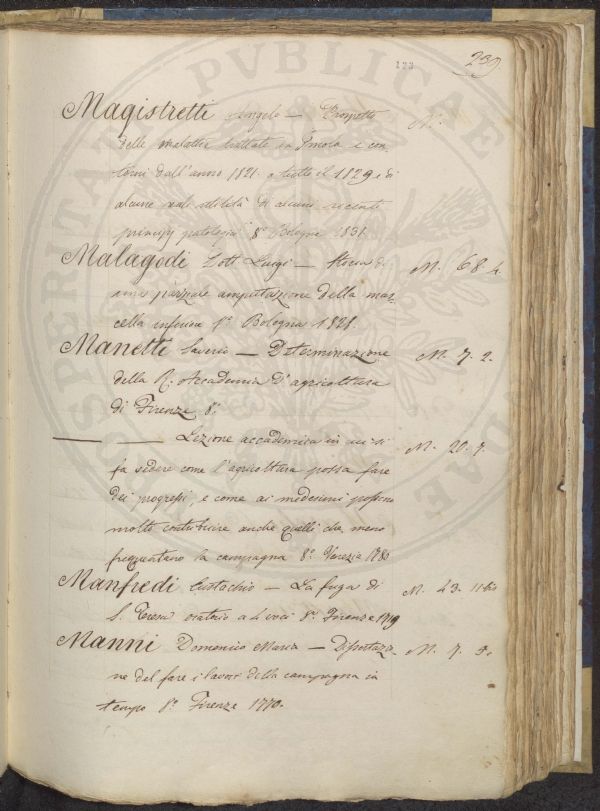 123
239
Magistretti Angelo — Prospetto M.
delle malattie trattate in Imola e con-
torni dall'anno 1821. a tutto il 1829 e di
alcune reali utilità di alcuni recenti
principj patologici 8.° Bologna 1831.
Malagodi Dott. Luigi — Storia di M. 68. 4.
una parziale amputazione della mas-
cella inferiore 8.° Bologna 1828.
Manetti Saverio — Determinazione M. 7. 2.
della R. Accademia d'agricoltura
di Firenze 8.°
——— ——— Lezione accademica in cui si M. 20. 7.
fa vedere come l'agricoltura possa fare
dei progressi, e come ai medesimi possono
molto contribuire anche quelli che meno
frequentano la campagna 8.° Venezia 1780
Manfredi Eustachio — La fuga di M. 43. 11
S. Teresa oratorio a 4 voci 8.° Firenze 1719
Manni Domenico Maria — Dissertazio- M. 7.
ne del fare i lavori della campagna in
tempo 8.° Firenze 1770.